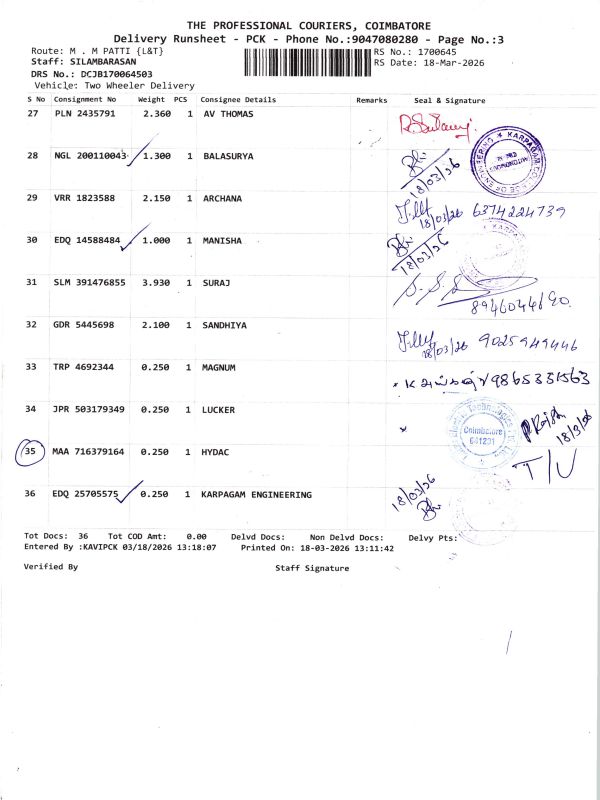 THE PROFESSIONAL COURIERS, COIMBATORE
Delivery Runsheet - PCK - Phone No.:9047080280 - Page No.:3
Route: M . M PATTI {L&T} RS No.: 1700645
Staff: SILAMBARASAN RS Date: 18-Mar-2026
DRS No.: DCJB170064503
Vehicle: Two Wheeler Delivery
S No Consignment No Weight PCS Consignee Details Remarks Seal & Signature
27 PLN 2435791 2.360 1 AV THOMAS
28 NGL 200110043 1.300 1 BALASURYA 18/03/26
29 VRR 1823588 2.150 1 ARCHANA 18/03/26 6374224739
30 EDQ 14588484 1.000 1 MANISHA 18/03/26
31 SLM 391476855 3.930 1 SURAJ 8946044690
32 GDR 5445698 2.100 1 SANDHIYA 18/03/26 9025949446
33 TRP 4692344 0.250 1 MAGNUM 9865331563
34 JPR 503179349 0.250 1 LUCKER Coimbatore 641201 18/3/26
35 MAA 716379164 0.250 1 HYDAC T/U
36 EDQ 25705575 0.250 1 KARPAGAM ENGINEERING 18/03/26
Tot Docs: 36 Tot COD Amt: 0.00 Delvd Docs: Non Delvd Docs: Delvy Pts:
Entered By :KAVIPCK 03/18/2026 13:18:07 Printed On: 18-03-2026 13:11:42
Verified By Staff Signature